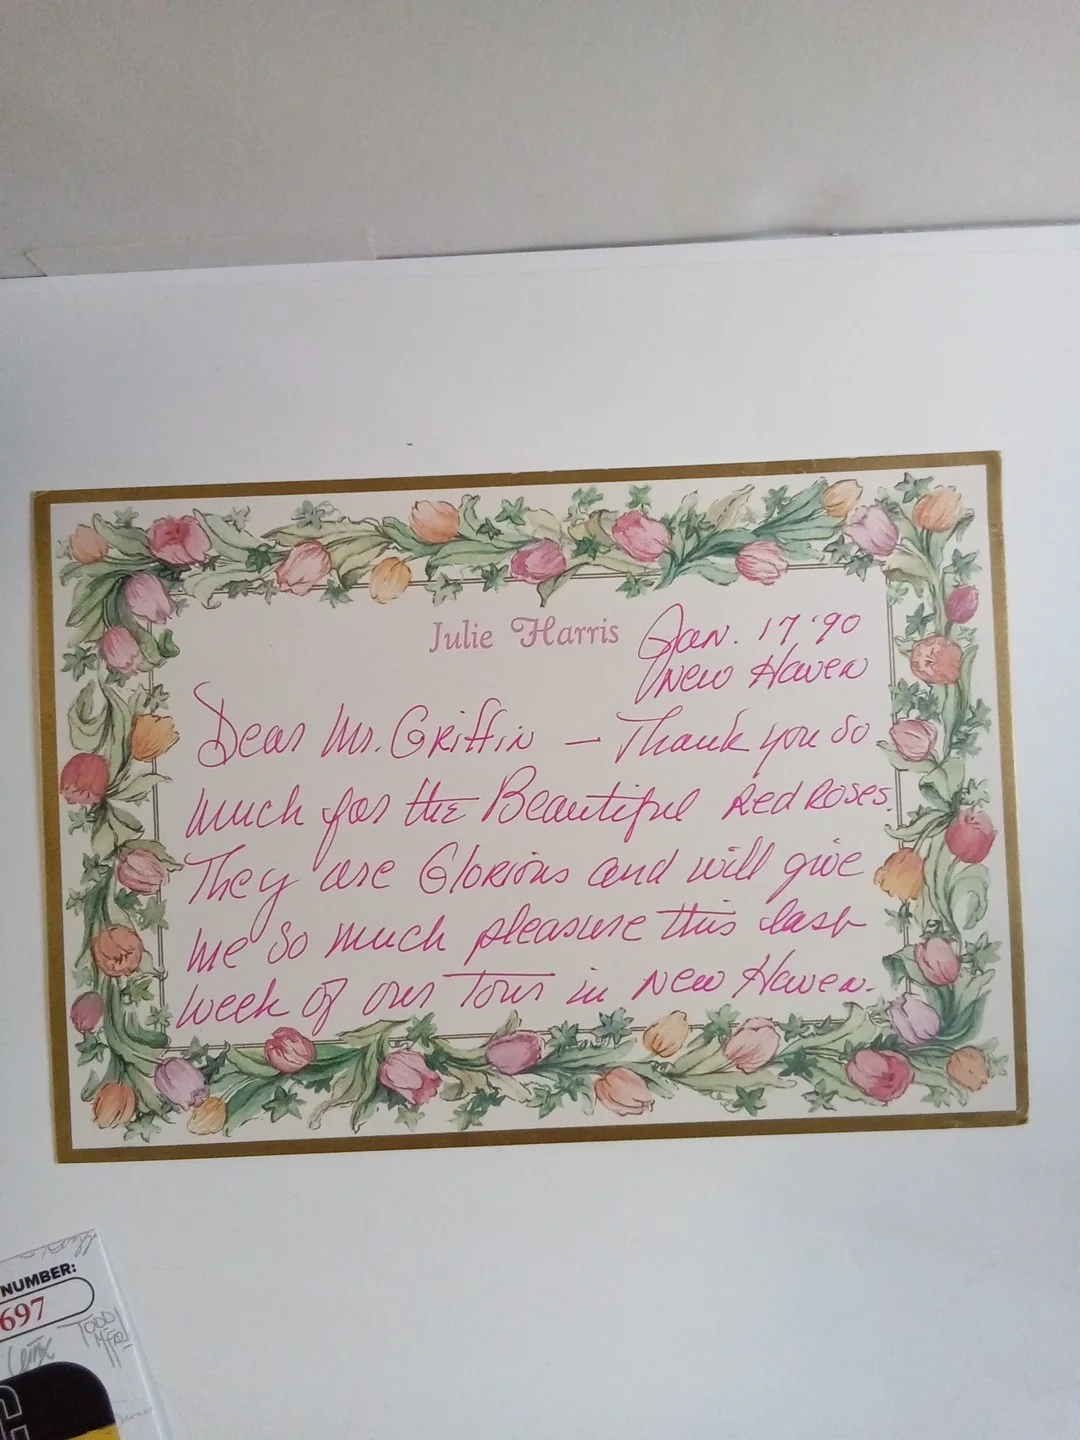 Julie Harris
Jan. 17 '90
New Haven
Dear Mr. Griffin — Thank you so
much for the Beautiful Red Roses.
They are Glorious and will give
me so much pleasure this last
week of our Tour in New Haven.
NUMBER:
697
TODD